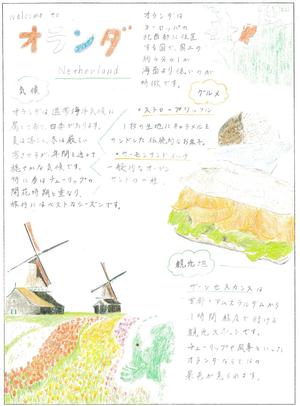 welcome to
オランダ
Netherland
オランダは
ヨーロッパの
北西部に位置
する国で、国土の
約4分の1が
海面より低いのが
特徴です。
気候
オランダは温帯海洋気候に
属しており、四季があります。
夏は涼しく、冬は厳しい
寒さですが、年間を通して
穏やかな気候です。
特に春はチューリップの
開花時期と重なり、
旅行にはベストなシーズンです。
グルメ
・ストロープワッフル
1枚の生地にキャラメルを
サンドした伝統的なお菓子。
一般的なオープン
サンドの一種
観光地
ザーンセスカンスは
首都・アムステルダムから
1時間程度で行ける
観光スポットです。
チューリップや風車といった
オランダならではの
景色が見られます。